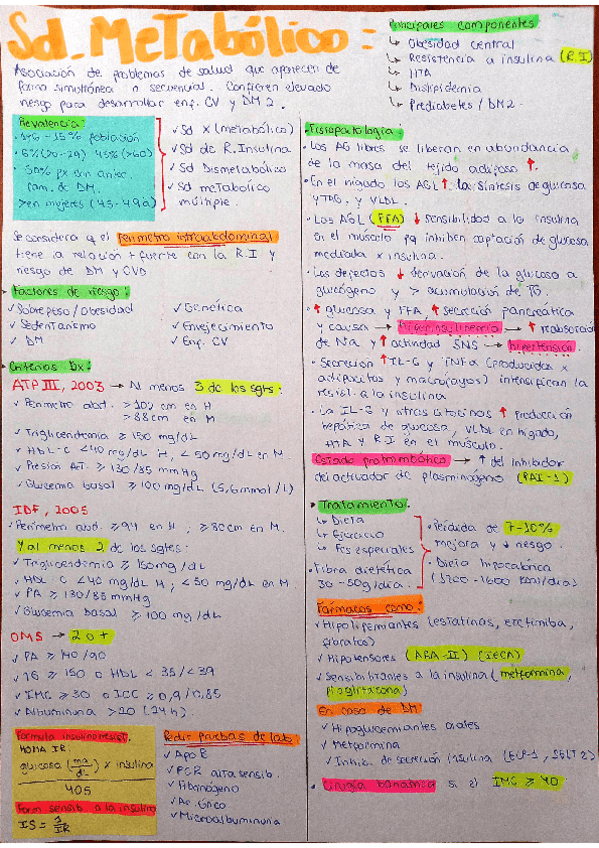 Sd. Metabólico:
Asociación de problemas de salud que aparecen de
forma simultánea o secuencial. Confieren elevado
riesgo para desarrollar enf. CV y DM2.
Prevalencia:
15% población
(20-29) (>60)
50% px con antec.
fam. de DM.
>en mujeres (45-49a)
✓ Sd X (metabólico)
✓ Sd de R. Insulina
✓ Sd Dismetabólico
✓ Sd metabólico
múltiple.
Se considera q el perímetro intraabdominal
tiene la relación + fuerte con la R.I y
riesgo de DM y CVD
Factores de riesgo:
✓ Sobrepeso/obesidad
✓ Sedentarismo
✓ DM
✓ Genética
✓ Envejecimiento
✓ Enf. CV
Criterios Dx:
ATP III, 2003 → Al menos 3 de los sgts:
✓ Perímetro abd. >102 cm en H
>88 cm en M
✓ Trigliceridemia ≥ 150 mg/dL
✓ HDL-C <40 mg/dL H, <50 mg/dL en M
✓ Presión AT. ≥ 130/85 mmHg
✓ Glucemia basal ≥ 100 mg/dL (5,6mmol/l)
IDF, 2005
✓ Perímetro abd. ≥94 en H, ≥80cm en M.
Y al menos 2 de los sgtes:
✓ Trigliceridemia ≥ 150mg/dL
✓ HDL-C <40 mg/dL H, <50 mg/dL en M
✓ PA ≥ 130/85 mmHg
✓ Glucemia basal ≥ 100 mg/dL
OMS → 2 o +
✓ PA ≥ 140/90
✓ TG ≥ 150 o HDL < 35/<39
✓ IMC ≥ 30 o ICC ≥ 0,9/0,85
✓ Albuminuria >20 (24h).
Fórmula insulinoresist.
HOMA IR:
glucosa (mg/dL) x insulina
405
Form sensib a la insulina
IS = 1/IR
Pedir pruebas de lab
✓ Apo B
✓ PCR alta sensib.
✓ Fibrinógeno
✓ Ac. úrico
✓ Microalbuminuria
Principales componentes
↳ Obesidad central
↳ Resistencia a insulina (R.I)
↳ HTA
↳ Dislipidemia
↳ Prediabetes/DM2.
Fisiopatología:
• Los AG libres se liberan en abundancia
de la masa del tejido adiposo ↑.
• En el hígado los AGL ↑ la síntesis de glucosa
y TAG, y VLDL.
• Los AGL (FFA) ↓ sensibilidad a la insulina
en el músculo pq inhiben captación de glucosa
mediada x insulina.
• Los defectos ↓ derivación de la glucosa a
glucógeno y > acumulación de TG.
• ↑ glucosa y FFA, ↑ secreción pancreática
y causa → hiperinsulinemia → ↑ reabsorción
de Na y ↑ actividad SNS → hipertensión.
• Secreción ↑ IL-6 y TNFα (producidos x
adipocitos y macrófagos) intensifican la
resist. a la insulina
• La IL-6 y otras citocinas ↑ producción
hepática de glucosa, VLDL en hígado,
HTA y R.I en el músculo.
Estado protrombótico → ↑ del inhibidor
del activador de plasminógeno (PAI-1)
Tratamiento:
↳ Dieta
↳ Ejercicio
↳ Fcs especiales
• Fibra dietética
30-50g/día.
• Pérdida de 7-10%
mejora y ↓ riesgo.
• Dieta hipocalórica
(1200-1600 kcal/día)
Fármacos como:
✓ Hipolipemiantes (estatinas, ezetimiba,
fibratos)
✓ Hipotensores (ARA-II) (IECA)
✓ Sensibilizantes a la insulina (metformina,
pioglitazona)
En caso de DM
✓ Hipoglucemiantes orales
✓ Metformina
✓ Inhib. de secreción insulina
• Cirugía bariátrica si el IMC ≥ 40